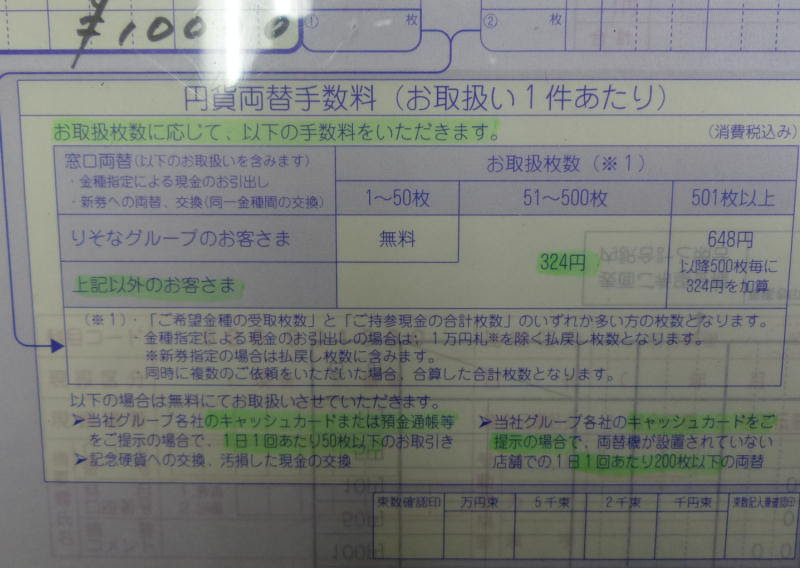 ¥10000
① 枚
② 枚
円貨両替手数料（お取扱い１件あたり）
お取扱枚数に応じて、以下の手数料をいただきます。
（消費税込み）
窓口両替（以下のお取扱いを含みます）
・金種指定による現金のお引出し
・新券への両替、交換（同一金種間の交換）
お取扱枚数（※１）
1～50枚
51～500枚
501枚以上
りそなグループのお客さま
無料
上記以外のお客さま
324円
648円
以降500枚毎に
324円を加算
（※１）・「ご希望金種の受取枚数」と「ご持参現金の合計枚数」のいずれか多い方の枚数となります。
・金種指定による現金のお引出しの場合は、１万円札※を除く払戻し枚数となります。
※新券指定の場合は払戻し枚数に含みます。
同時に複数のご依頼をいただいた場合、合算した合計枚数となります。
以下の場合は無料にてお取扱いさせていただきます。
➤当社グループ各社のキャッシュカードまたは預金通帳等
をご提示の場合で、１日１回あたり50枚以下のお取引き
➤記念硬貨への交換、汚損した現金の交換
➤当社グループ各社のキャッシュカードをご
提示の場合で、両替機が設置されていない
店舗での１日１回あたり200枚以下の両替
束数確認印
万円束
５千束
２千束
千円束